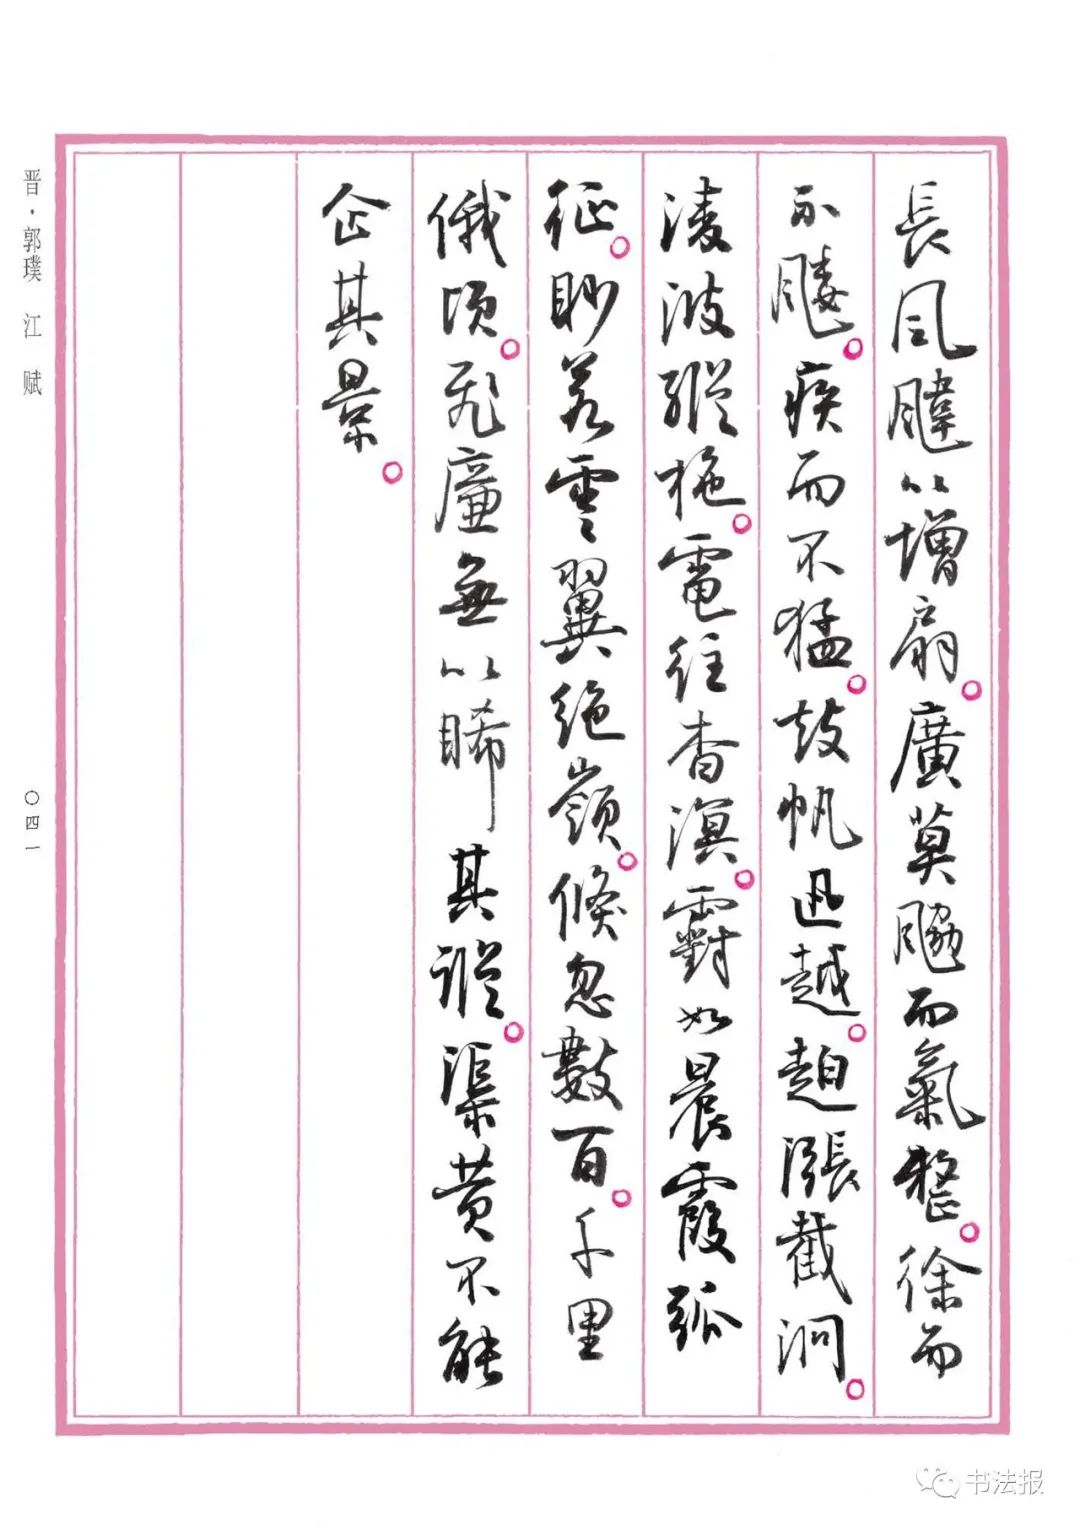 長風颹以增扇。廣莫䬅而氣整。徐而
不。疾而不猛。鼓帆迅越。趠漲截泂。
淩波縱柂。電往杳溟。䨴如晨霞孤
征。眇若雲翼絕嶺。倏忽數百。千里
俄頃。飛廉無以睎其蹤。渠黃不能
企其景。
晋·郭璞 江 赋
〇四一
书法报